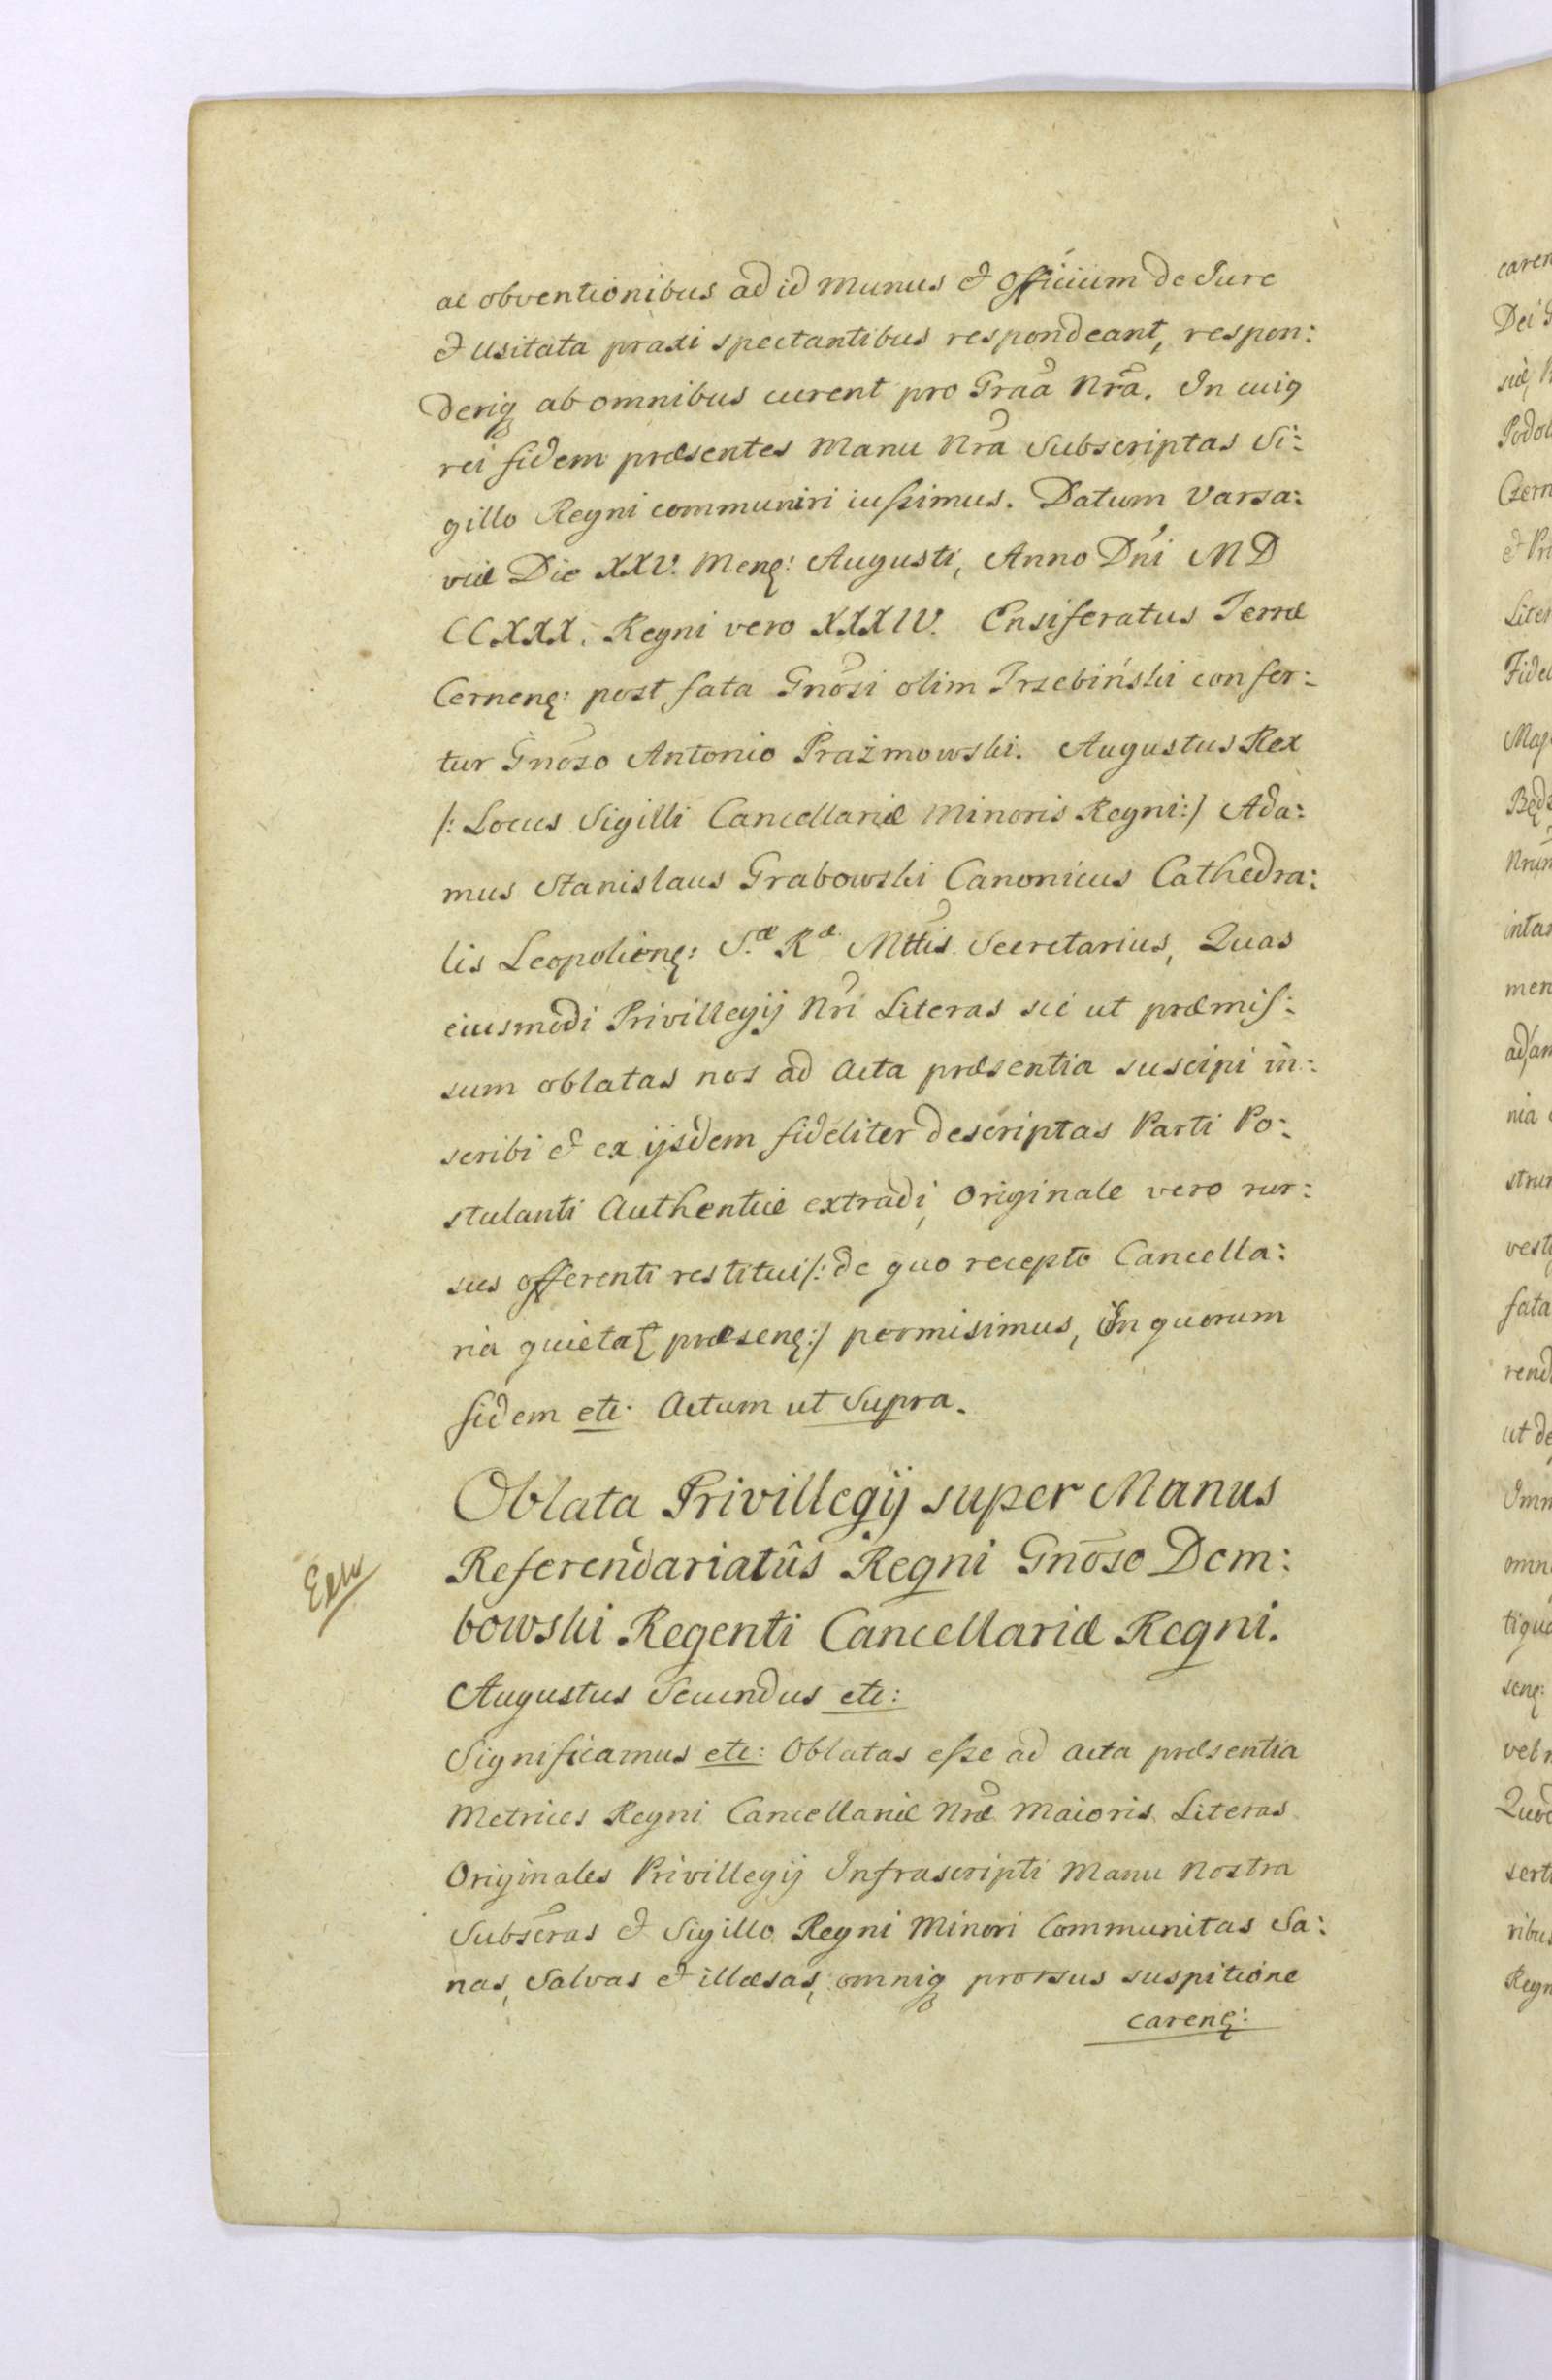 ac obventionibus ad id munus et Officium de Jure
et Usitata praxi spectantibus respondeant, respon:
deriq̃ ab omnibus curent pro Graã Nrã. In cuiq
rei fidem præsentes Manu Nrã Subscriptas Si:
gillo Regni communiri iussimus. Datum Varsa:
viæ Die XXV. Menę: Augusti, Anno Dńi MD
CCXXX. Regni vero XXXIV. Ensiferatus Terræ
Cernenę: post fata Gnõsi olim Trzebiński confer:
tur Gnõso Antonio Prażmowski. Augustus Rex
/: Locus Sigilli Cancellariæ Minoris Regni:/ Ada:
mus Stanislaus Grabowski Canonicus Cathedra:
lis Leopolienę: S.æ R.æ Mttis Secretarius, Quas
eiusmodi Privillegij Nri Literas sic ut præmis:
sum oblatas nos ad Acta præsentia suscipi in:
scribi et ex ijsdem fideliter descriptas Parti Po:
stulanti Authentice extradi, Originale vero rur:
sus offerenti restitui /: de quo recepto Cancella:
ria quietaț præsenę:/ permisimus, In quorum
fidem etc. Actum ut Supra.
Oblata Privillegij super Manus
Referendariatûs Regni Gnõso Dem:
bowski Regenti Cancellariæ Regni.
Augustus Secundus etc:
Significamus etc: Oblatas esse ad Acta præsentia
Metrices Regni Cancellariæ Nræ Maioris Literas
Originales Privillegij Infrascripti Manu Nostra
Subscras et Sigillo Regni Minori Communitas Sa:
nas, Salvas et illæsas, omniq̃ prorsus suspitione
carenę:
caren
Dei G
Podol
Czern
et Pri
Liter
Fidel
Maj
Będz
Nrũm
intar
men
adjan
nia
strum
vest
fata
rend
ut de
Omn
omn
tiqua
senę:
vel n
Quod
sert
ribus
Regn